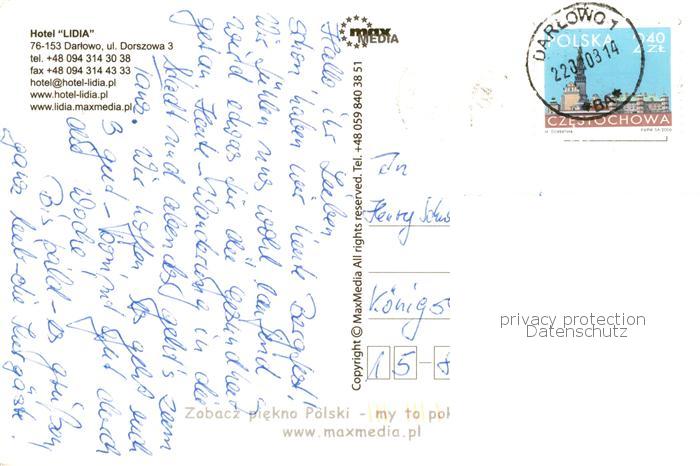 Hotel "LIDIA"
76-153 Darłowo, ul. Dorszowa 3
tel. +48 094 314 30 38
fax +48 094 314 43 33
hotel@hotel-lidia.pl
www.hotel-lidia.pl
www.lidia.maxmedia.pl
max
MEDIA
DARŁOWO 1
22 03 14
*BA*
POLSKA
2,40
ZŁ
CZĘSTOCHOWA
Hallo ihr Lieben
schon haben wir heute Bergfest!
Wir fühlen uns wohl
wird etwas für die Gesundheit
getan. Heute - Wanderung in die
Stadt und abends geht's zum
Tanz. Wir hoffen es geht euch
3 gut - kommt gut durch
die Woche
Bis bald - es grüßen
ganz lieb - die Kurgäste.
Copyright © MaxMedia All rights reserved. Tel. +48 059 840 38 51
An
Henry
Königs
15-
privacy protection
Datenschutz
Zobacz piękno Polski - my to pok
www.maxmedia.pl